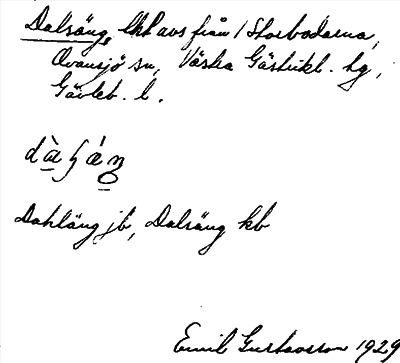 Dalsäng, lht avs från 1 Storbodarna,
Ovansjö sn, Västra Gästrikl. hg,
Gävleb. l.
Dahläng jb, Dalsäng kb
Emil Gustavsson 1929